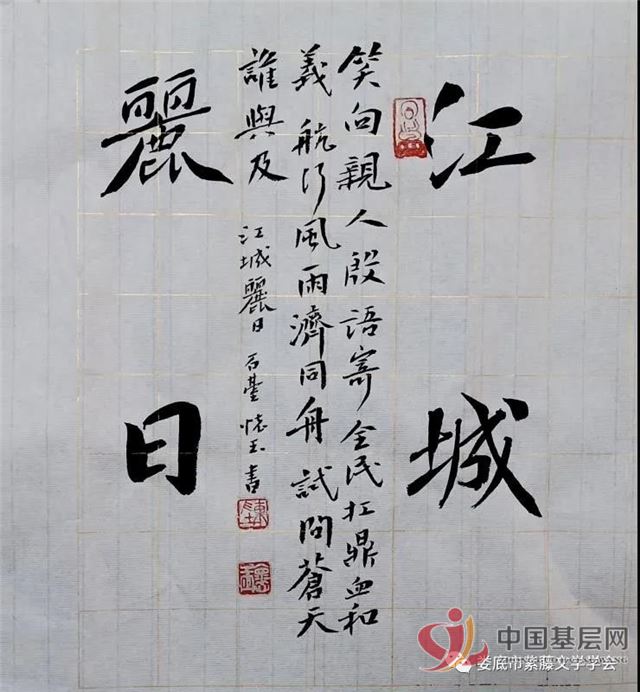 江城
笑向親人殷語寄全民扛鼎血和
義航行風雨濟同舟試問蒼天
誰與及 江城麗日 石臺 怀玉書
麗日
中国基层网
娄底市紫藤文学学会